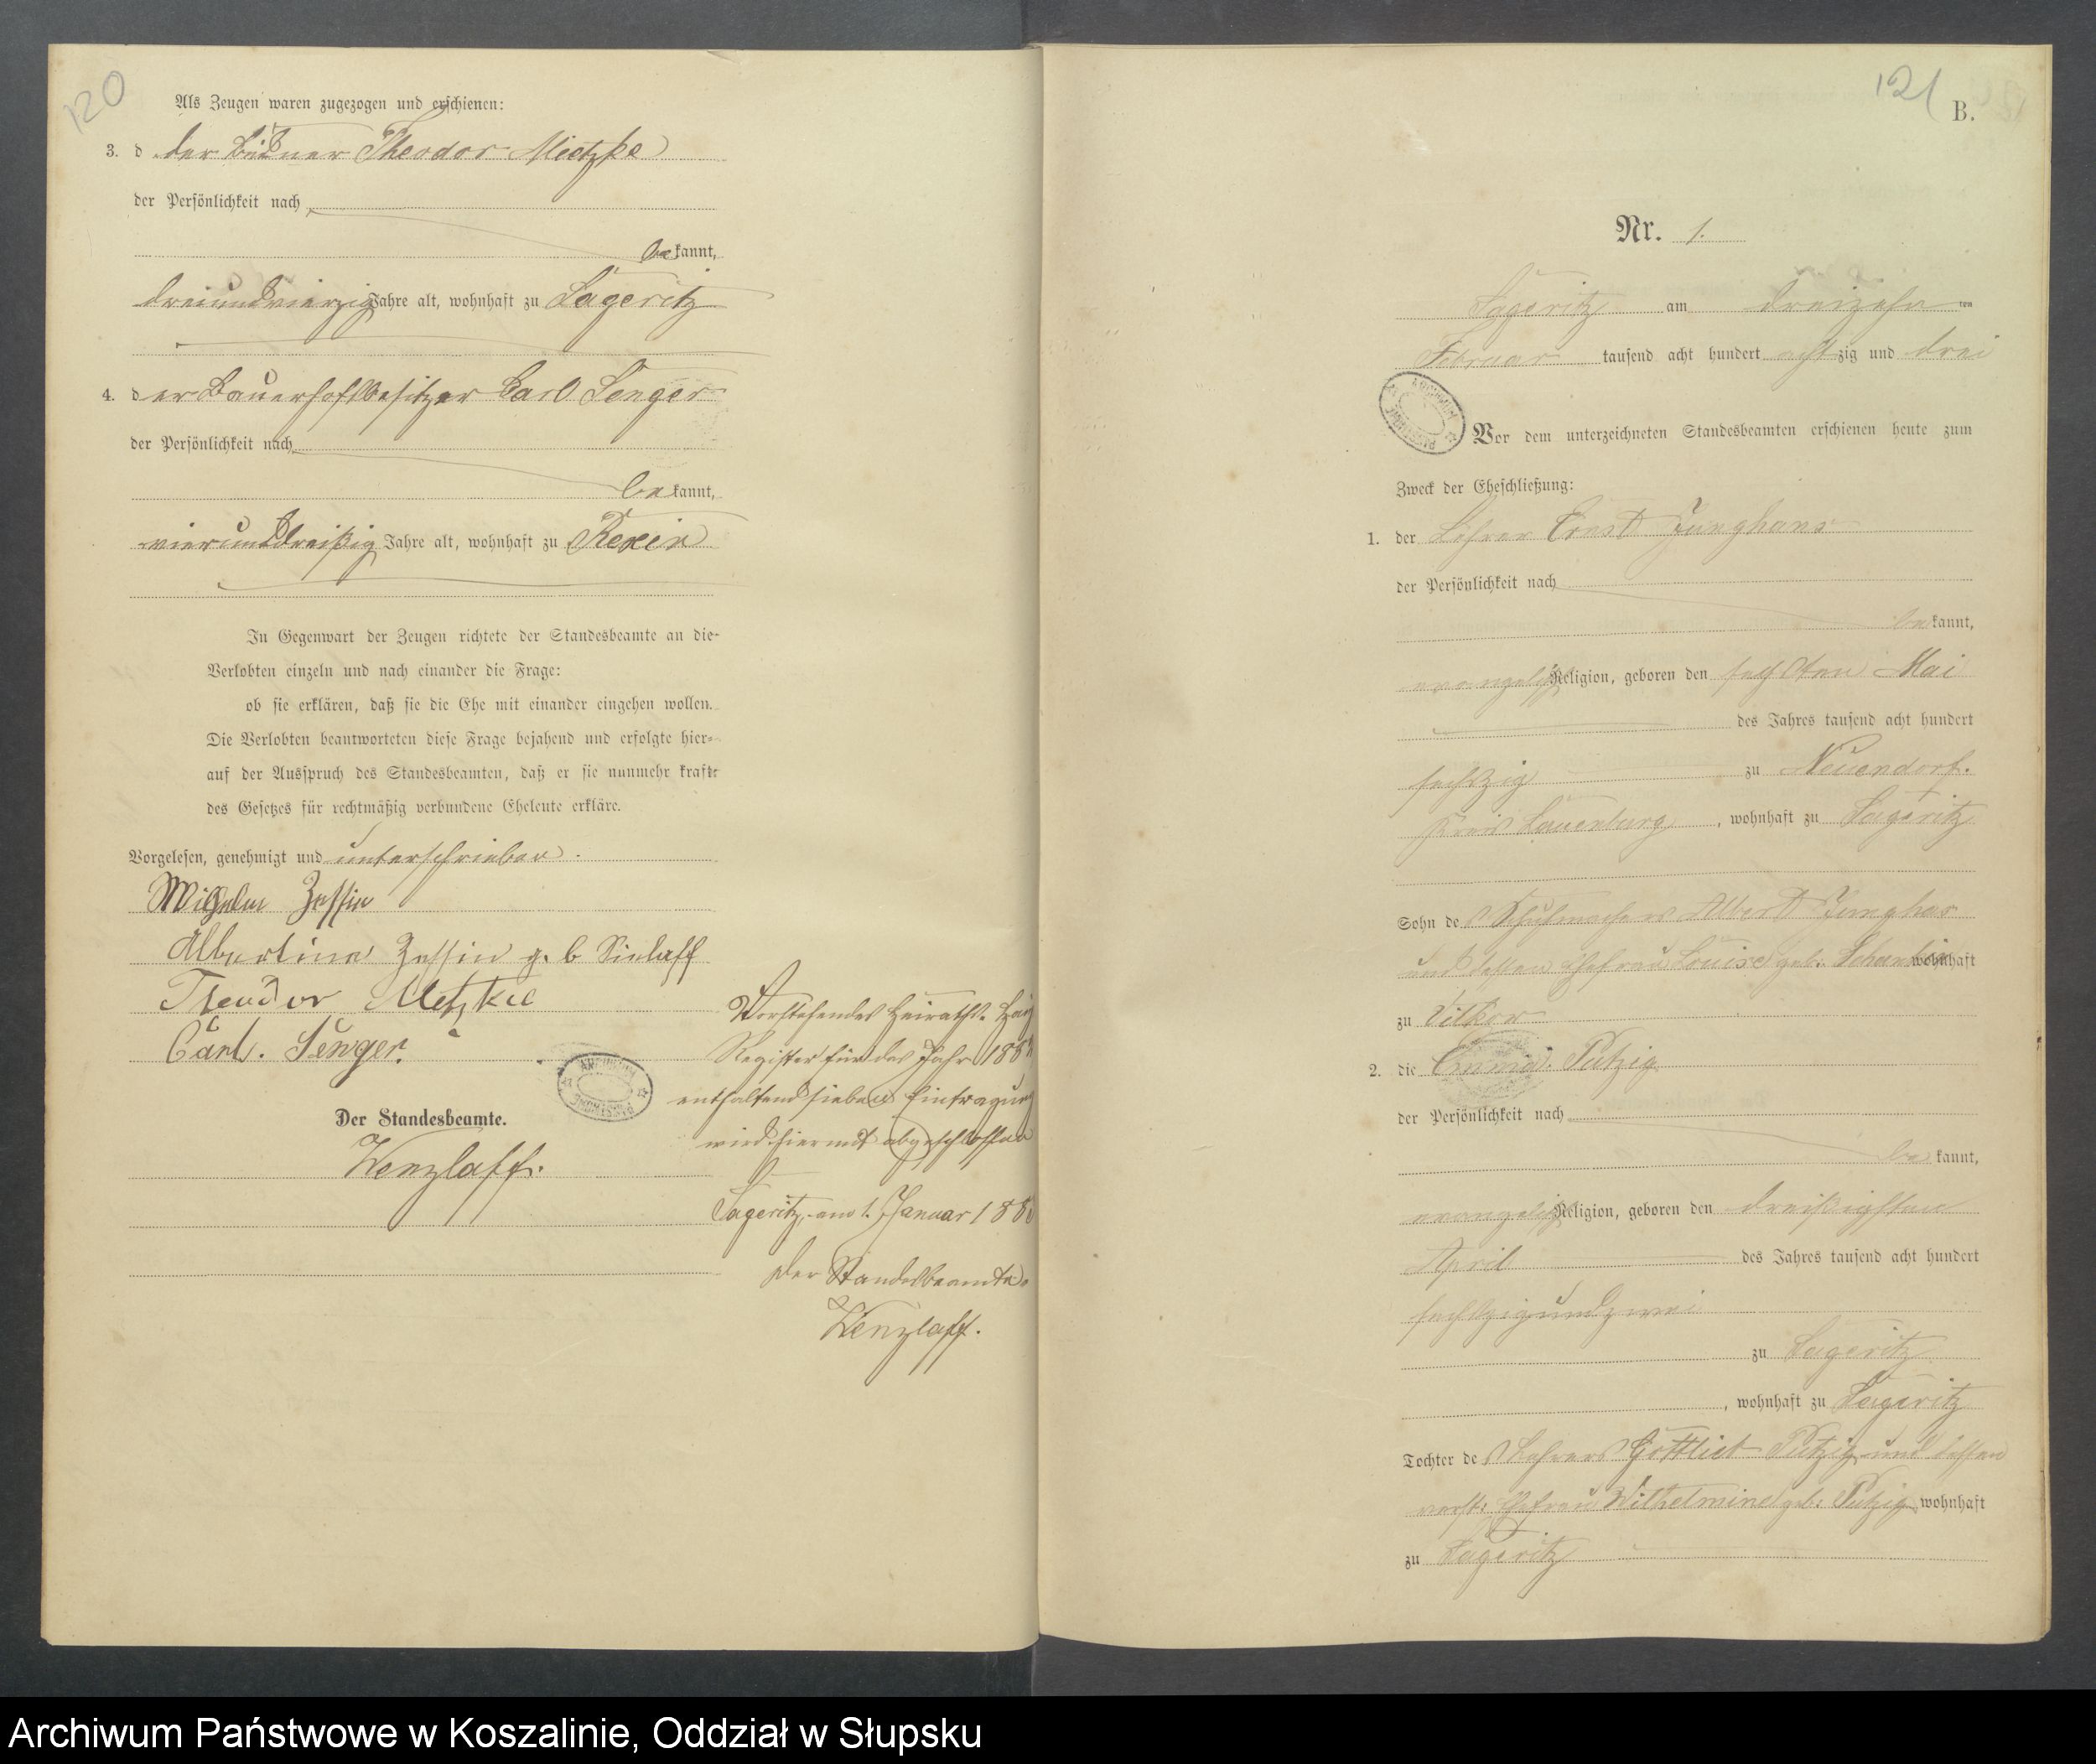 120
Als Zeugen waren zugezogen und erschienen:
3. d der Büdner Theodor Mietzke
der Persönlichkeit nach
be kannt,
dreiundvierzig Jahre alt, wohnhaft zu Lageritz
4. d er Bauerhofbesitzer Carl Senger
der Persönlichkeit nach
be kannt,
vierunddreißig Jahre alt, wohnhaft zu Rexin
In Gegenwart der Zeugen richtete der Standesbeamte an die
Verlobten einzeln und nach einander die Frage:
ob sie erklären, daß sie die Ehe mit einander eingehen wollen.
Die Verlobten beantworteten diese Frage bejahend und erfolgte hier-
auf der Ausspruch des Standesbeamten, daß er sie nunmehr kraft
des Gesetzes für rechtmäßig verbundene Eheleute erkläre.
Vorgelesen, genehmigt und unterschrieben.
Wilhelm Zessin
Albertine Zessin g. b Sielaff
Theodor Metzke
Carl. Senger.
Der Standesbeamte.
Wenzlaff.
Vorstehendes Heiraths-
Register für das Jahr 188
enthaltend sieben Eintragung
wird hiermit abgeschlossen
Lageritz, am 1. Januar 188
Der Standesbeamte.
Wenzlaff.
121
B.
Nr. 1.
Lageritz am dreizehn ten
Februar tausend acht hundert acht zig und drei
Vor dem unterzeichneten Standesbeamten erschienen heute zum
Zweck der Eheschließung:
1. der Lehrer Ernst Junghans
der Persönlichkeit nach
be kannt,
evangelisch Religion, geboren den sechsten Mai
des Jahres tausend acht hundert
sechszig zu Neuendorf.
Kreis Lauenburg, wohnhaft zu Lageritz
Sohn de s Schuhmachers Albert Junghas
und dessen Ehefrau Louise geb. wohnhaft
zu Vilkow
2. die Emma Putzig
der Persönlichkeit nach
be kannt,
evangelisch Religion, geboren den dreißigsten
April des Jahres tausend acht hundert
sechszigundzwei
zu Lageritz
, wohnhaft zu Lageritz
Tochter de s Lehrers Gottlieb Putzig und dessen
verst. Ehefrau Wilhelmine geb. Putzig wohnhaft
zu Lageritz
Archiwum Państwowe w Koszalinie, Oddział w Słupsku